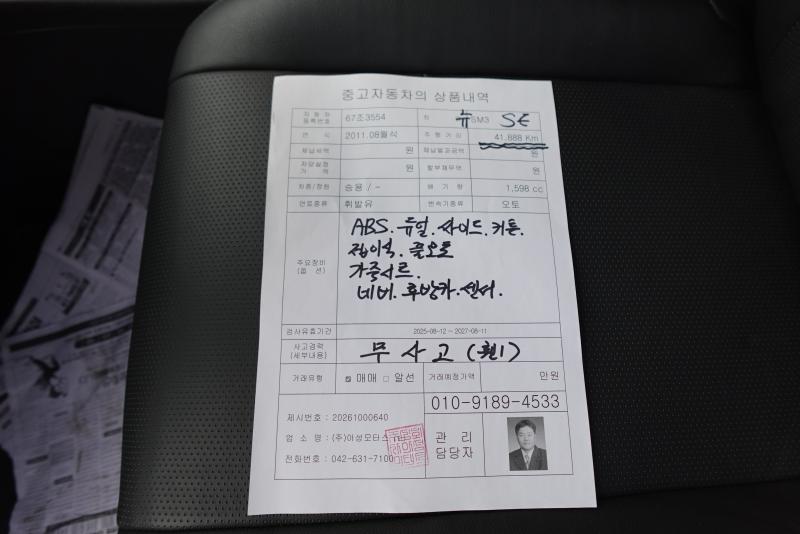 중고자동차의 상품내역
자동차등록번호 67조3554 차 뉴 SM3 SE
연 식 2011.08월식 주행거리 41,888 Km
체납세액 원 원
원 할부채무액 원
차종/정원 승용 / - 배기량 1,598 cc
연료종류 휘발유 변속기종류 오토
주요장비
(옵 션)
ABS. 듀얼. 사이드. 커튼.
접이식. 풀오토
가죽시트.
네비. 후방카. 센서.
검사유효기간 2025-08-12 ~ 2027-08-11
사고경력
(세부내용)
무 사 고 (휀1)
거래유형 ☑ 매매 □ 알선 거래예정가액 만원
010-9189-4533
제시번호 : 20261000640
업 소 명 : (주)아성모터스
전화번호 : 042-631-7100
관 리
담당자